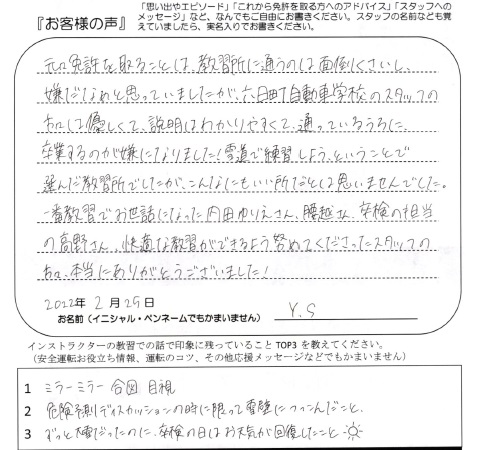 『お客様の声』
「思い出やエピソード」「これから免許を取る方へのアドバイス」「スタッフへの
メッセージ」など、なんでもご自由にお書きください。スタッフの名前なども覚
えていましたら、実名入りでお書きください。
元々免許を取ることは、教習所に通うのは面倒くさいし、
嫌だなぁと思っていましたが、六日町自動車学校のスタッフの
方々は優しくて、説明はわかりやすくて、通っているうちに、
卒業するのが嫌になりました！雪道で練習しよう、ということで
選んだ教習所でしたが、こんなにもいい所だとは思いませんでした。
一番教習でお世話になった内田ゆりえさん、腰越さん、卒検の担当
の高野さん、快適な教習ができるよう努めてくださったスタッフの
方々、本当にありがとうございました！
2022年 2月25日
お名前（イニシャル・ペンネームでもかまいません） Y.S
インストラクターの教習での話で印象に残っていること TOP3 を教えてください。
（安全運転お役立ち情報、運転のコツ、その他応援メッセージなどでもかまいません）
1 ミラーミラー 合図 目視
2 危険予測ディスカッションの時に限って雪壁につっこんだこと、
3 ずっと大雪だったのに、卒検の日はお天気が回復したこと